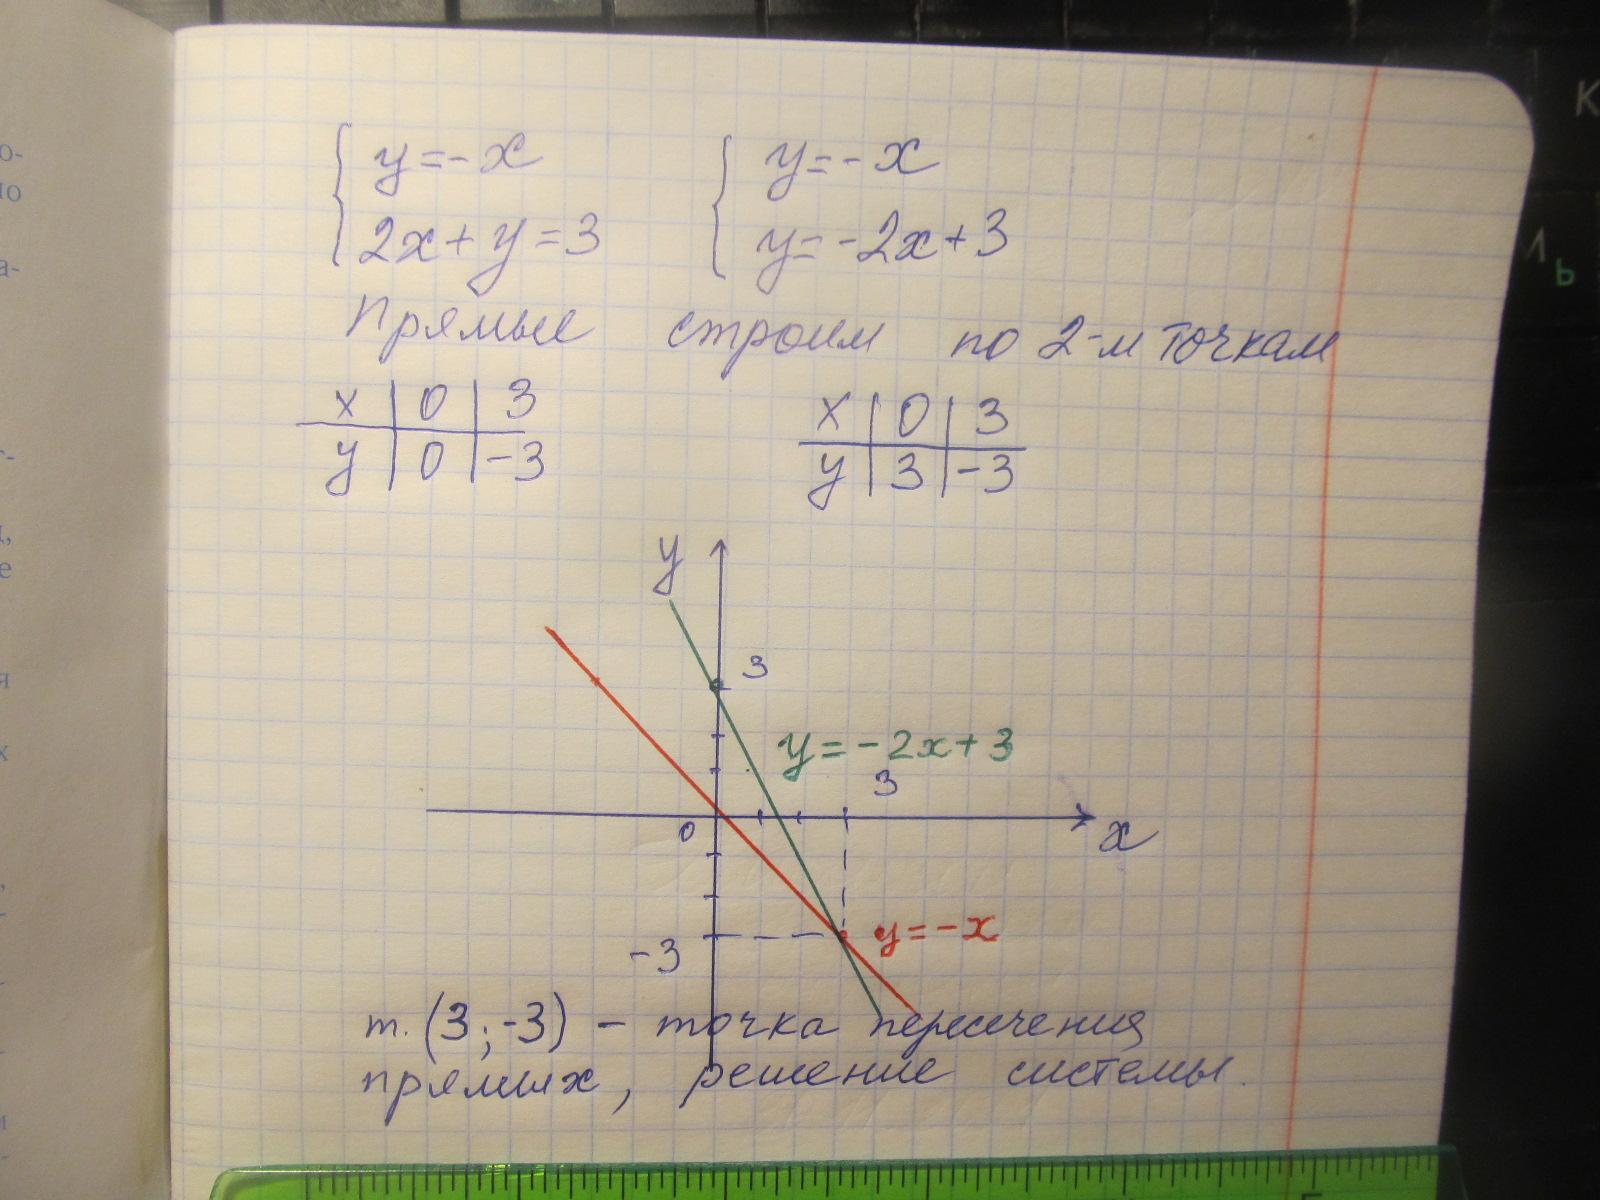 y=-x y=-x
2x+y=3 y=-2x+3
Прямые строим по 2-м точкам
x 0 3 x 0 3
y 0 -3 y 3 -3
y
3
y=-2x+3
3
0 x
y=-x
-3
т. (3;-3) - точка пересечения
прямых, решение системы.